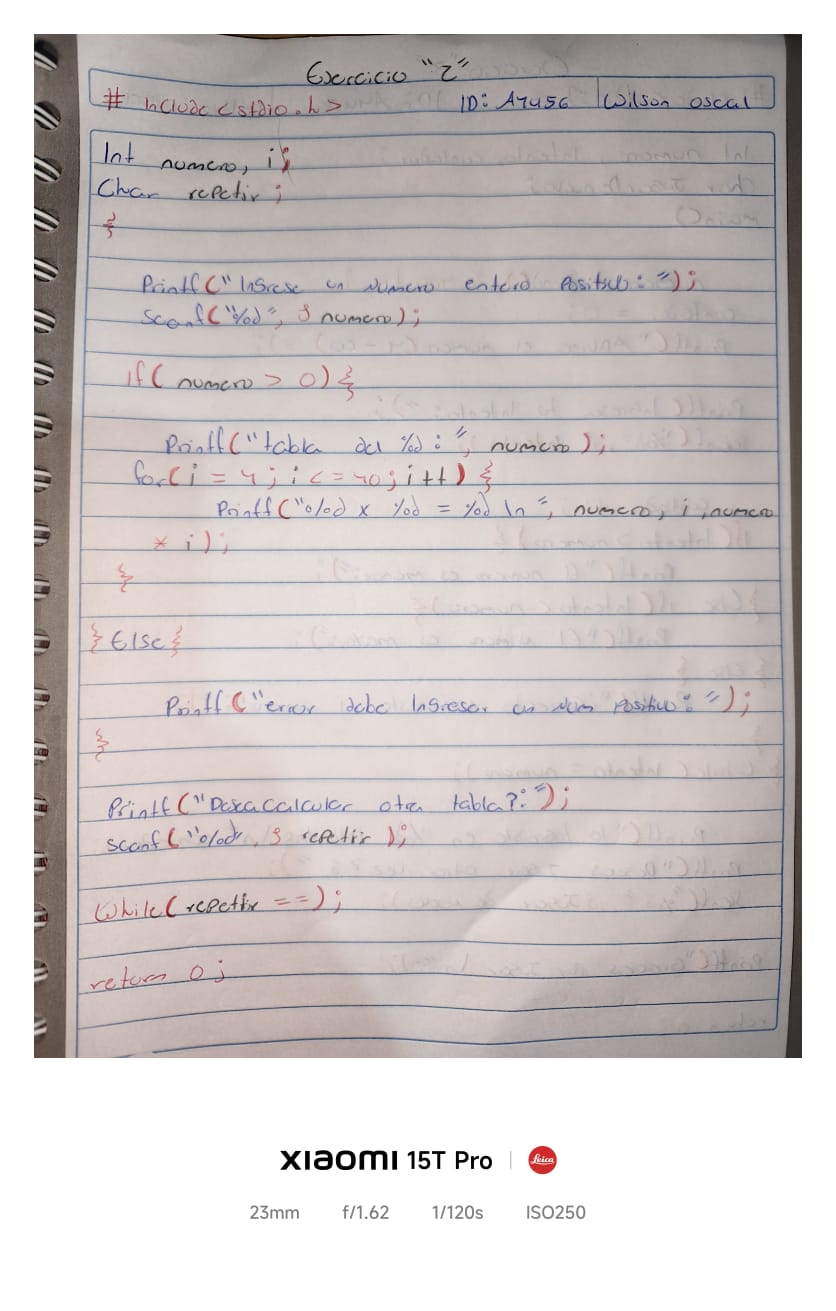 Ejercicio "2"
# Include <stdio.h> ID: A7456 Wilson oscal
Int numero, i;
Char repetir ;
{
Printf("Ingrese un Numero entero Positivo: ");
Scanf("%d", & numero);
if( numero > 0) {
Printf("tabla del %d: ", numero );
for(i = 1; i <= 10; i++) {
Printf("%d x %d = %d \n ", numero, i, numero
* i);
}
} Else {
Printf("error debe Ingresar un Num Positivo: ");
}
Printf("Desea Calcular otra tabla?: ");
scanf( "%d", & repetir );
While( repetir ==);
return 0;
XIAOMI 15T Pro | Leica
23mm f/1.62 1/120s ISO250